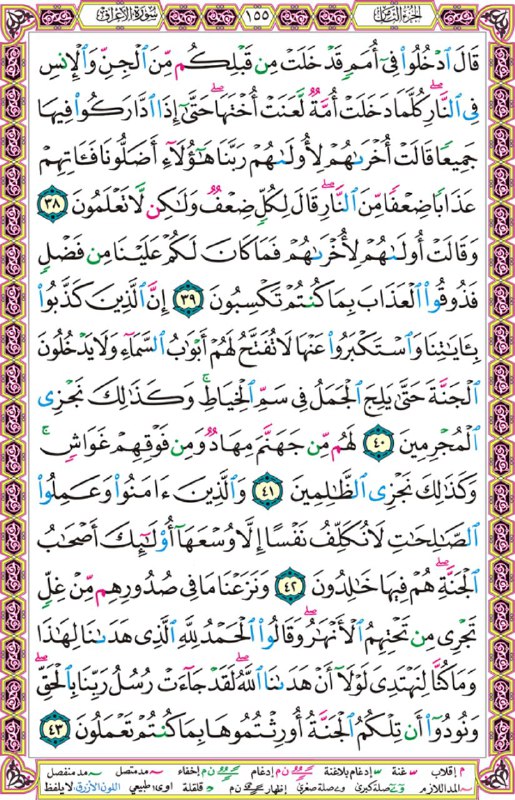 الجزء الثامن ١٥٥ سورة الأعراف
قَالَ ٱدْخُلُوا۟ فِىٓ أُمَمٍ قَدْ خَلَتْ مِن قَبْلِكُم مِّنَ ٱلْجِنِّ وَٱلْإِنسِ
فِى ٱلنَّارِ ۖ كُلَّمَا دَخَلَتْ أُمَّةٌ لَّعَنَتْ أُخْتَهَا ۖ حَتَّىٰٓ إِذَا ٱدَّارَكُوا۟ فِيهَا
جَمِيعًا قَالَتْ أُخْرَىٰهُمْ لِأُولَىٰهُمْ رَبَّنَا هَٰٓؤُلَآءِ أَضَلُّونَا فَـَٔاتِهِمْ
عَذَابًا ضِعْفًا مِّنَ ٱلنَّارِ ۖ قَالَ لِكُلٍّ ضِعْفٌ وَلَٰكِن لَّا تَعْلَمُونَ ٣٨
وَقَالَتْ أُولَىٰهُمْ لِأُخْرَىٰهُمْ فَمَا كَانَ لَكُمْ عَلَيْنَا مِن فَضْلٍ
فَذُوقُوا۟ ٱلْعَذَابَ بِمَا كُنتُمْ تَكْسِبُونَ ٣٩ إِنَّ ٱلَّذِينَ كَذَّبُوا۟
بِـَٔايَٰتِنَا وَٱسْتَكْبَرُوا۟ عَنْهَا لَا تُفَتَّحُ لَهُمْ أَبْوَٰبُ ٱلسَّمَآءِ وَلَا يَدْخُلُونَ
ٱلْجَنَّةَ حَتَّىٰ يَلِجَ ٱلْجَمَلُ فِى سَمِّ ٱلْخِيَاطِ ۚ وَكَذَٰلِكَ نَجْزِى
ٱلْمُجْرِمِينَ ٤٠ لَهُم مِّن جَهَنَّمَ مِهَادٌ وَمِن فَوْقِهِمْ غَوَاشٍ ۚ
وَكَذَٰلِكَ نَجْزِى ٱلظَّٰلِمِينَ ٤١ وَٱلَّذِينَ ءَامَنُوا۟ وَعَمِلُوا۟
ٱلصَّٰلِحَٰتِ لَا نُكَلِّفُ نَفْسًا إِلَّا وُسْعَهَآ أُو۟لَٰٓئِكَ أَصْحَٰبُ
ٱلْجَنَّةِ ۖ هُمْ فِيهَا خَٰلِدُونَ ٤٢ وَنَزَعْنَا مَا فِى صُدُورِهِم مِّنْ غِلٍّ
تَجْرِى مِن تَحْتِهِمُ ٱلْأَنْهَٰرُ ۖ وَقَالُوا۟ ٱلْحَمْدُ لِلَّهِ ٱلَّذِى هَدَىٰنَا لِهَٰذَا
وَمَا كُنَّا لِنَهْتَدِىَ لَوْلَآ أَنْ هَدَىٰنَا ٱللَّهُ ۖ لَقَدْ جَآءَتْ رُسُلُ رَبِّنَا بِٱلْحَقِّ ۖ
وَنُودُوٓا۟ أَن تِلْكُمُ ٱلْجَنَّةُ أُورِثْتُمُوهَا بِمَا كُنتُمْ تَعْمَلُونَ ٤٣
م إقلاب س غنة س إدغام بلاغنة ن م إدغام ن م إخفاء مد متصل مد منفصل
المد اللازم صلة كبرى صلة صغرى إظهار ن م قلقلة اوى: طبيعي اللون الأزرق: لا يلفظ